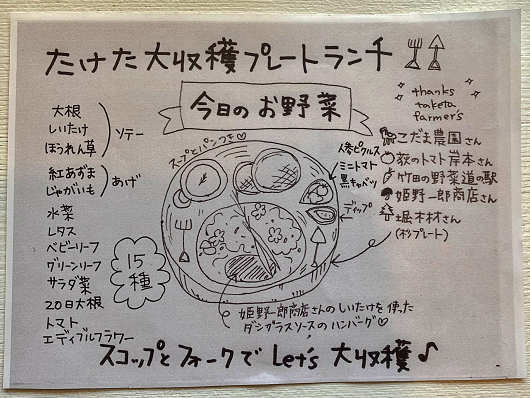 たけた大収穫プレートランチ
今日のお野菜
thanks
taketa
farmer's
大根
しいたけ
ほうれん草
ソテー
紅あずま
じゃがいも
あげ
水菜
レタス
ベビーリーフ
グリーンリーフ
サラダ菜
20日大根
トマト
エディブルフラワー
15
種
スープとパンつき♡
人参ピクルス
ミニトマト
黒キャベツ
ディップ
こだま農園さん
荻のトマト岸本さん
竹田の野菜道の駅
姫野一郎商店さん
堀木材さん
(木のプレート)
姫野一郎商店さんのしいたけを使った
デミグラスソースのハンバーグ♡
スコップとフォークで Let's 大収穫♪